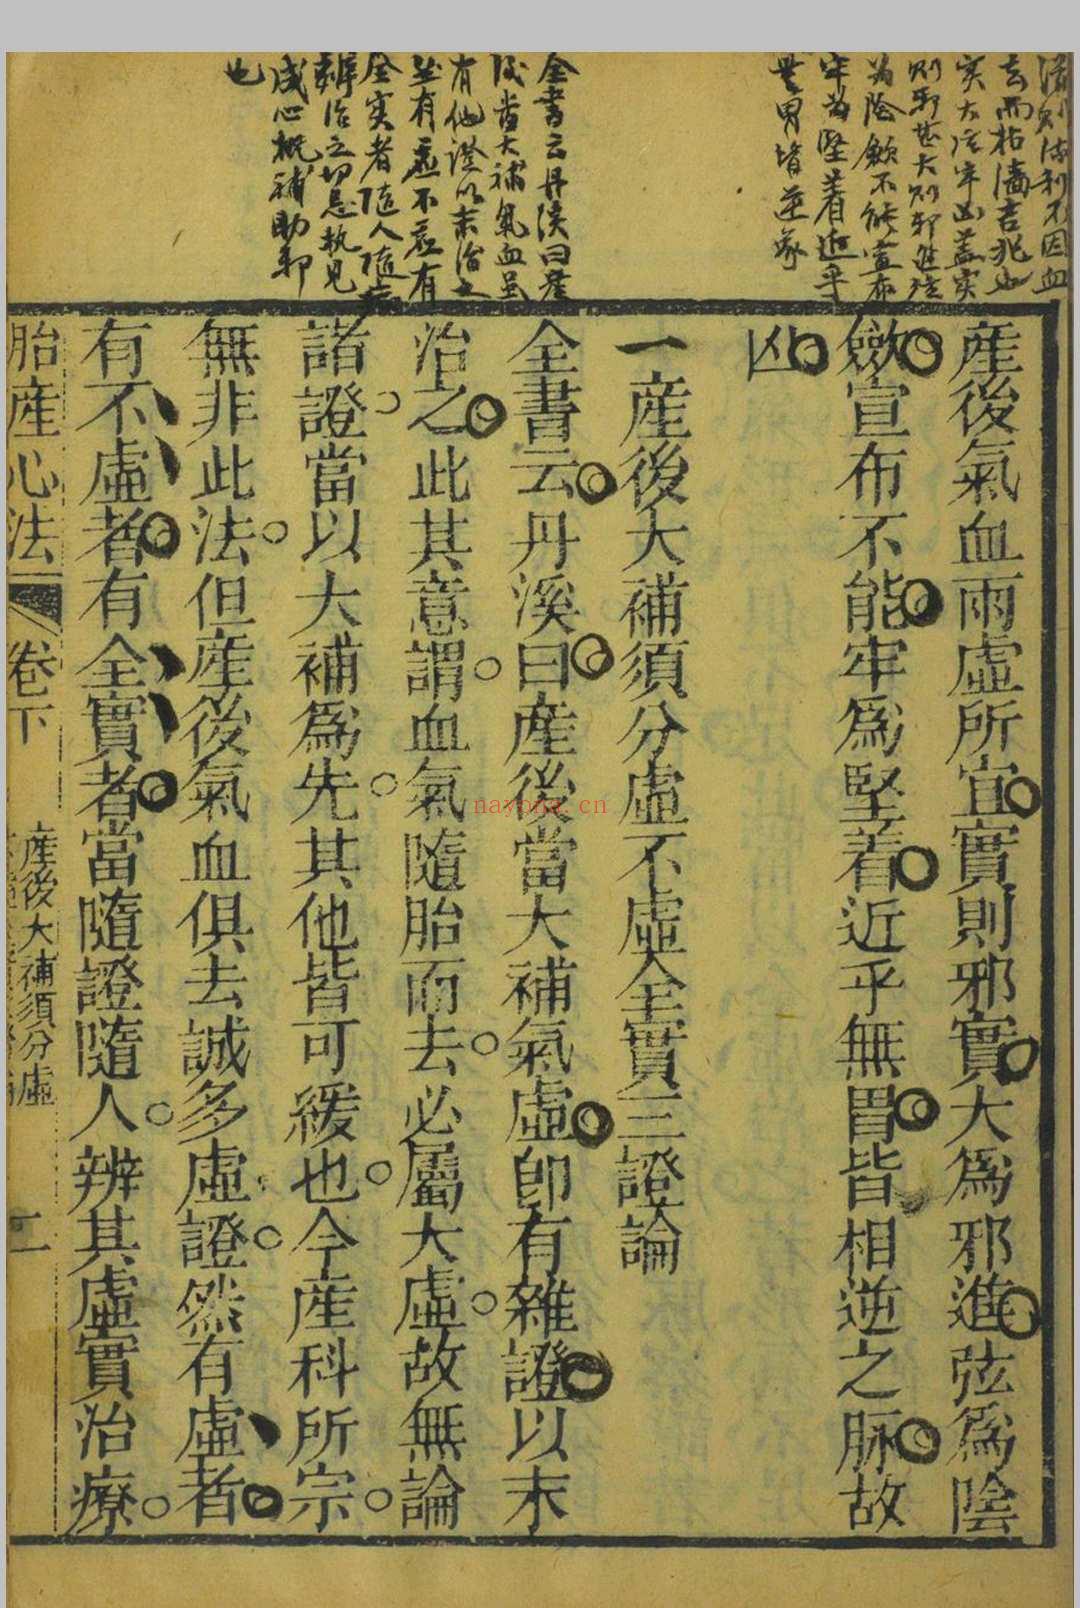 産後氣血兩虛所宜實則邪實大爲邪進弦爲陰
斂宣布不能牢爲堅着近乎無胃皆相逆之脉故
凶
一産後大補須分虛不虛全實三證論
全書云丹溪曰産後當大補氣虛卽有雜證以末
治之此其意謂血氣隨胎而去必屬大虛故無論
諸證當以大補爲先其他皆可緩也今産科所宗
無非此法但産後氣血俱去誠多虛證然有虛者
有不虛者有全實者當隨證隨人辨其虛實治療
胎産心法 卷下 産後大補須分虛 二
去而枯濇吉兆也
實大弦牢凶蓋實
則邪甚大則邪進弦
爲陰斂不能宣布
牢爲堅着近乎
無胃皆逆象
全書云丹溪曰産
後當大補氣血虽
有他證以末治之
然有虛不虛有
全實者隨人隨病
辨治之切忌執見
成心概補助邪
也
nayona.cn